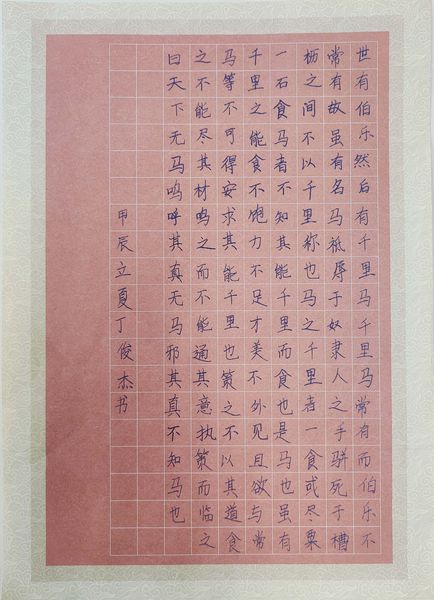 世有伯乐然后有千里马千里马常有而伯乐不
常有故虽有名马祗辱于奴隶人之手骈死于槽
枥之间不以千里称也马之千里者一食或尽粟
一石食马者不知其能千里而食也是马也虽有
千里之能食不饱力不足才美不外见且欲与常
马等不可得安求其能千里也策之不以其道食
之不能尽其材鸣之而不能通其意执策而临之
曰天下无马呜呼其真无马邪其真不知马也
甲辰立夏丁俊杰书